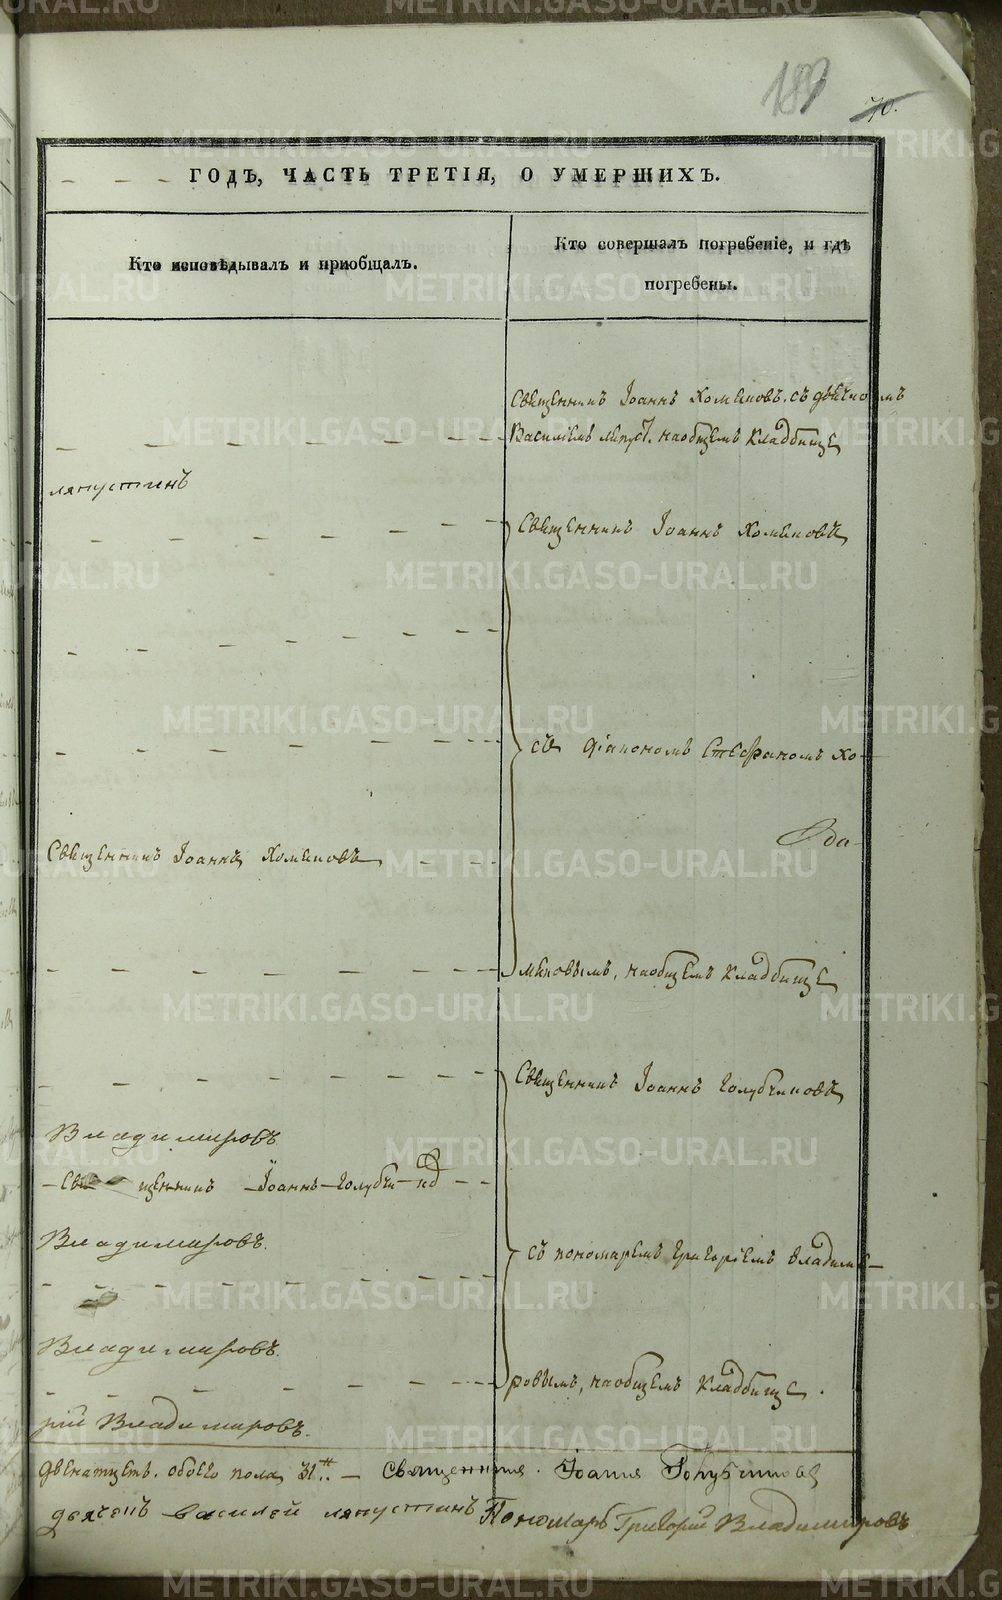 189
70.
ГОДЪ, ЧАСТЬ ТРЕТІЯ, О УМЕРШИХЪ.
Кто исповѣдывалъ и пріобщалъ.
Кто совершалъ погребеніе, и гдѣ
погребены.
Священникъ Іоаннъ Хомяковъ. съ дьячкомъ
Василіемъ Ляпуст. на общемъ кладбище
Ляпустинъ
Священникъ Іоаннъ Хомяковъ
съ діакономъ Стефаномъ Хо-
Священникъ Іоаннъ Хомяковъ
мяковымъ, на общемъ кладбище
Священникъ Іоаннъ Голубчиковъ
Владимировъ
Священникъ Іоаннъ Голубчи
Владимировъ.
съ пономаремъ Григоріемъ Владими-
Владимировъ.
ровымъ, на общемъ кладбище.
рій Владимировъ.
двенатцеть. обоего пола 31. Священникъ. Іоаннъ Голубчиковъ
дьячекъ Василей Ляпустинъ Пономарь Григорій Владимировъ
METRIKI.GASO-URAL.RU